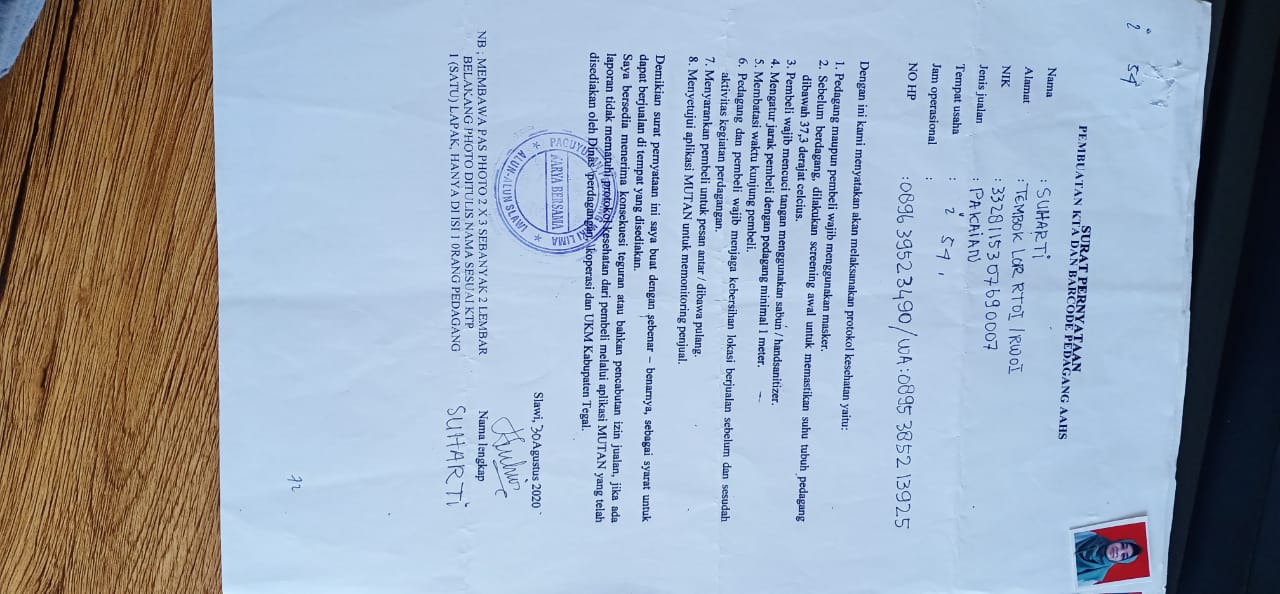 2 54
SURAT PERNYATAAN
PEMBUATAN KTA DAN BARCODE PEDAGANG AAHS
Nama : SUHARTi
Alamat : TEMBOK LOR RT01 / RW01
NIK : 3328115307690007
Jenis jualan : PAKAIAN
Tempat usaha : 2 54,
Jam operasional :
NO HP : 089639523490/WA:0895385213925
Dengan ini kami menyatakan akan melaksanakan protokol kesehatan yaitu:
1. Pedagang maupun pembeli wajib menggunakan masker.
2. Sebelum berdagang, dilakukan screening awal untuk memastikan suhu tubuh pedagang
dibawah 37,3 derajat celcius.
3. Pembeli wajib mencuci tangan menggunakan sabun / handsanitizer.
4. Mengatur jarak pembeli dengan pedagang minimal 1 meter.
5. Membatasi waktu kunjung pembeli.
6. Pedagang dan pembeli wajib menjaga kebersihan lokasi berjualan sebelum dan sesudah
aktivitas kegiatan perdagangan.
7. Menyarankan pembeli untuk pesan antar / dibawa pulang.
8. Menyetujui aplikasi MUTAN untuk memonitoring penjual.
Demikian surat pernyataan ini saya buat dengan sebenar – benarnya, sebagai syarat untuk
dapat berjualan di tempat yang disediakan.
Saya bersedia menerima konsekuesi teguran atau bahkan pencabutan izin jualan, jika ada
laporan tidak mematuhi protokol kesehatan dari pembeli melalui aplikasi MUTAN yang telah
disediakan oleh Dinas perdagangan, koperasi dan UKM Kabupaten Tegal.
Slawi, 30 Agustus 2020
PAGUYUBAN LIMA
KARYA BERSAMA
ALUN-ALUN SLAWI
Nama lengkap
SUHARTi
NB ; MEMBAWA PAS PHOTO 2 X 3 SEBANYAK 2 LEMBAR
BELAKANG PHOTO DITULIS NAMA SESUAI KTP
1 (SATU) LAPAK, HANYA DI ISI 1 ORANG PEDAGANG
72